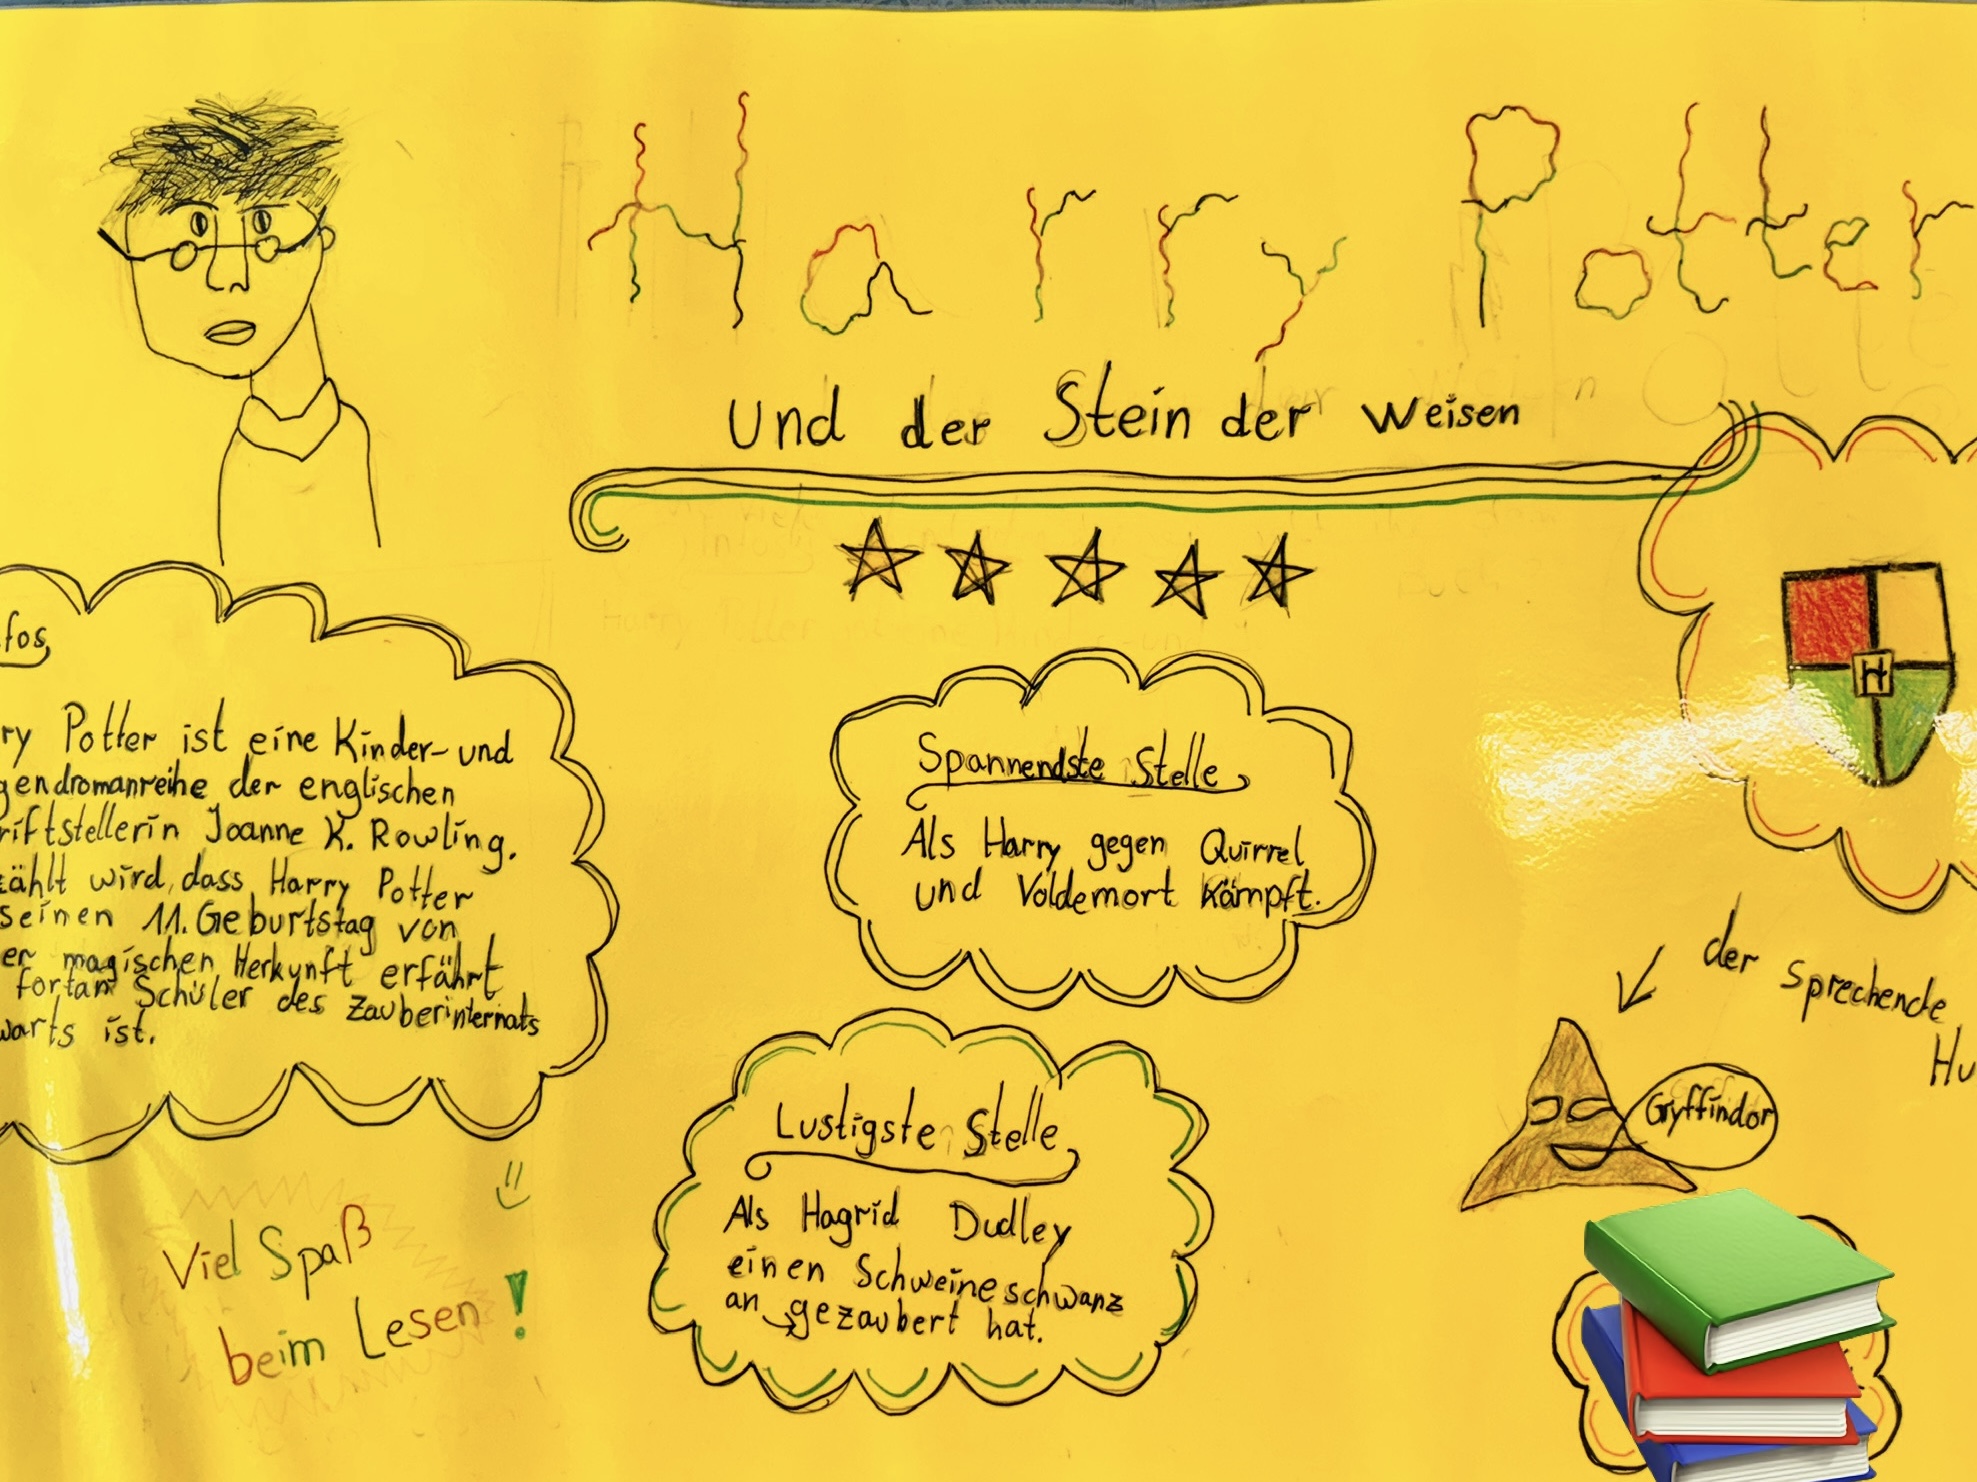 Harry Potter
Und der Stein der Weisen
fos
ry Potter ist eine Kinder- und
gendromanreihe der englischen
riftstellerin Joanne K. Rowling.
zählt wird, dass Harry Potter
seinen 11. Geburtstag von
er magischen Herkunft erfährt
fortan Schüler des Zauberinternats
warts ist.
Viel Spaß
beim Lesen!
Spannendste Stelle
Als Harry gegen Quirrel
und Voldemort kämpft.
Lustigste Stelle
Als Hagrid Dudley
einen Schweineschwanz
an gezaubert hat.
H
der sprechende
Hu
Gryffindor